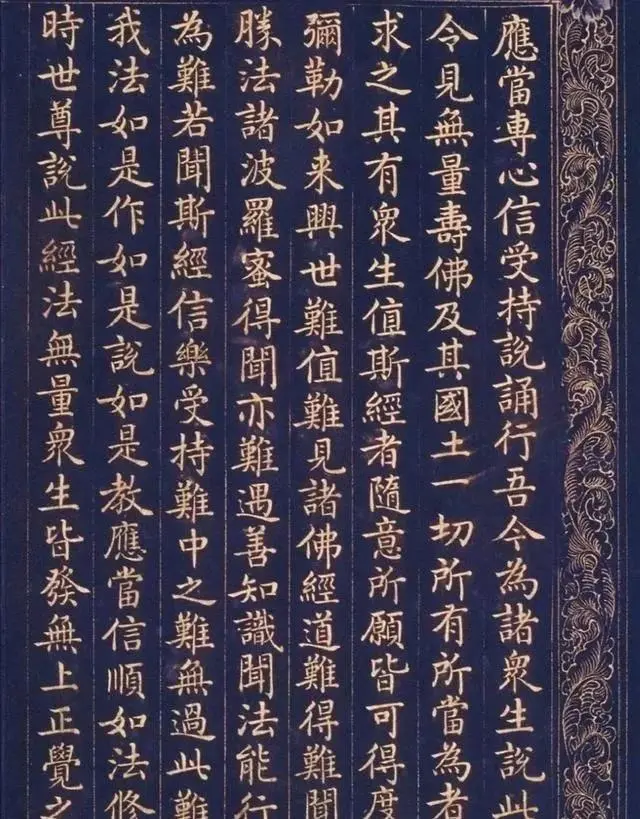 應當專心信受持說誦行吾今為諸衆生說此
令見無量壽佛及其國土一切所有所當為者
求之其有衆生值斯經者隨意所願皆可得度
彌勒如来興世難值難見諸佛經道難得難聞
勝法諸波羅蜜得聞亦難遇善知識聞法能行
為難若聞斯經信樂受持難中之難無過此難
我法如是作如是說如是教應當信順如法修
時世尊說此經法無量衆生皆發無上正覺之